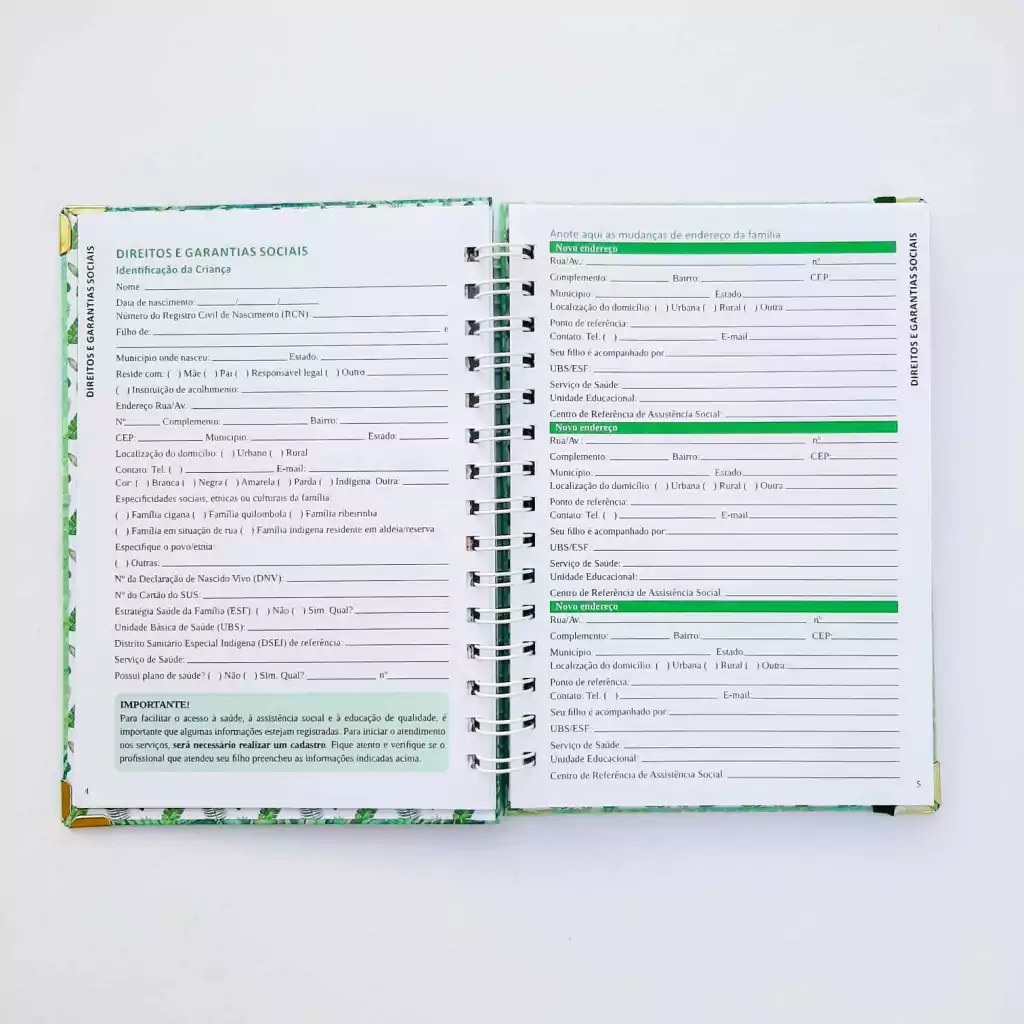 DIREITOS E GARANTIAS SOCIAIS
DIREITOS E GARANTIAS SOCIAIS
Identificação da Criança
Nome
Data de nascimento: ______/______/______
Número do Registro Civil de Nascimento (RCN):
Filho de: e
Município onde nasceu: Estado:
Reside com: ( ) Mãe ( ) Pai ( ) Responsável legal ( ) Outro
( ) Instituição de acolhimento:
Endereço Rua/Av:
Nº Complemento: Bairro:
CEP: Município: Estado:
Localização do domicílio: ( ) Urbano ( ) Rural
Contato: Tel. ( ) E-mail:
Cor: ( ) Branca ( ) Negra ( ) Amarela ( ) Parda ( ) Indígena Outra:
Especificidades sociais, étnicas ou culturais da família:
( ) Família cigana ( ) Família quilombola ( ) Família ribeirinha
( ) Família em situação de rua ( ) Família indígena residente em aldeia/reserva
Especifique o povo/etnia:
( ) Outras:
Nº da Declaração de Nascido Vivo (DNV):
Nº do Cartão do SUS:
Estratégia Saúde da Família (ESF): ( ) Não ( ) Sim. Qual?
Unidade Básica de Saúde (UBS):
Distrito Sanitário Especial Indígena (DSEI) de referência:
Serviço de Saúde:
Possui plano de saúde? ( ) Não ( ) Sim. Qual? nº
IMPORTANTE!
Para facilitar o acesso à saúde, à assistência social e à educação de qualidade, é
importante que algumas informações estejam registradas. Para iniciar o atendimento
nos serviços, será necessário realizar um cadastro. Fique atento e verifique se o
profissional que atendeu seu filho preencheu as informações indicadas acima.
4
Anote aqui as mudanças de endereço da família
Novo endereço
Rua/Av.: nº
Complemento: Bairro: CEP:
Município: Estado
Localização do domicílio: ( ) Urbana ( ) Rural ( ) Outra
Ponto de referência:
Contato: Tel. ( ) E-mail
Seu filho é acompanhado por
UBS/ESF:
Serviço de Saúde:
Unidade Educacional:
Centro de Referência de Assistência Social:
Novo endereço
Rua/Av.: nº
Complemento: Bairro: CEP:
Município: Estado
Localização do domicílio: ( ) Urbana ( ) Rural ( ) Outra
Ponto de referência:
Contato: Tel. ( ) E-mail
Seu filho é acompanhado por:
UBS/ESF:
Serviço de Saúde:
Unidade Educacional:
Centro de Referência de Assistência Social
Novo endereço
Rua/Av. nº
Complemento: Bairro: CEP:
Município: Estado
Localização do domicílio: ( ) Urbana ( ) Rural ( ) Outra:
Ponto de referência:
Contato: Tel. ( ) E-mail:
Seu filho é acompanhado por:
UBS/ESF:
Serviço de Saúde
Unidade Educacional:
Centro de Referência de Assistência Social
5
DIREITOS E GARANTIAS SOCIAIS